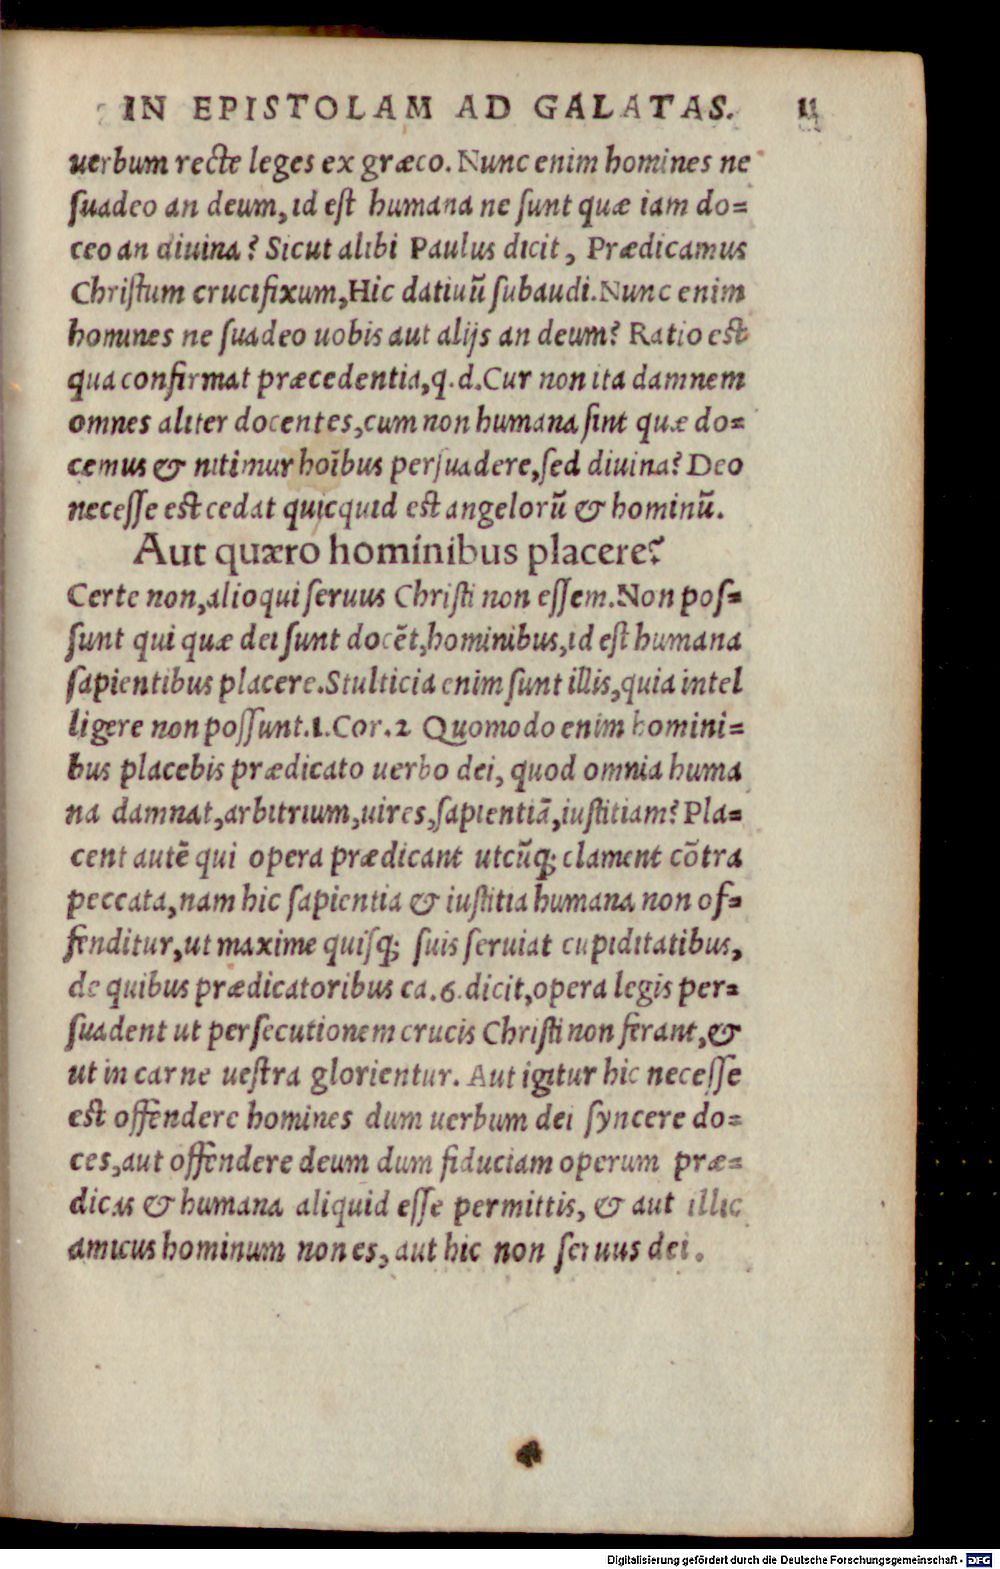 IN EPISTOLAM AD GALATAS. 11
uerbum recte leges ex græco. Nunc enim homines ne
suadeo an deum, id est humana ne sunt quæ iam do=
ceo an diuina? Sicut alibi Paulus dicit, Prædicamus
Christum crucifixum, Hic datiuū subaudi. Nunc enim
homines ne suadeo uobis aut alijs an deum? Ratio est
qua confirmat præcedentia, q. d. Cur non ita damnem
omnes aliter docentes, cum non humana sint quæ do=
cemus & nitimur hoībus persuadere, sed diuina? Deo
necesse est cedat quicquid est angelorū & hominū.
Aut quæro hominibus placere?
Certe non, alioqui seruus Christi non essem. Non pos=
sunt qui quæ dei sunt docēt, hominibus, id est humana
sapientibus placere. Stulticia enim sunt illis, quia intel
ligere non possunt. 1. Cor. 2 Quomodo enim homini=
bus placebis prædicato uerbo dei, quod omnia huma
na damnat, arbitrium, uires, sapientiā, iustitiam? Pla=
cent autē qui opera prædicant utcūq; clament cōtra
peccata, nam hic sapientia & iustitia humana non of=
fenditur, ut maxime quisq; suis seruiat cupiditatibus,
de quibus prædicatoribus ca. 6. dicit, opera legis per=
suadent ut persecutionem crucis Christi non ferant, &
ut in carne uestra glorientur. Aut igitur hic necesse
est offendere homines dum uerbum dei syncere do=
ces, aut offendere deum dum fiduciam operum præ=
dicas & humana aliquid esse permittis, & aut illic
amicus hominum non es, aut hic non seruus dei.
Digitalisierung gefördert durch die Deutsche Forschungsgemeinschaft - DFG